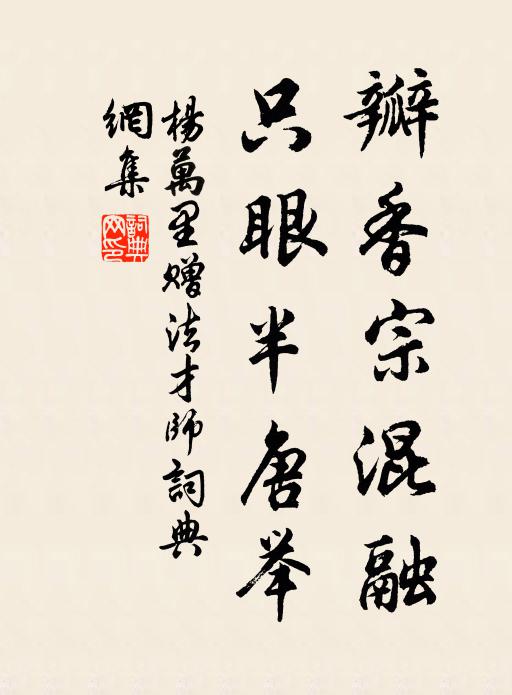 瓣香宗混融
只眼半唐举
楊萬里赠法才師詞典
網集
詞典
网印